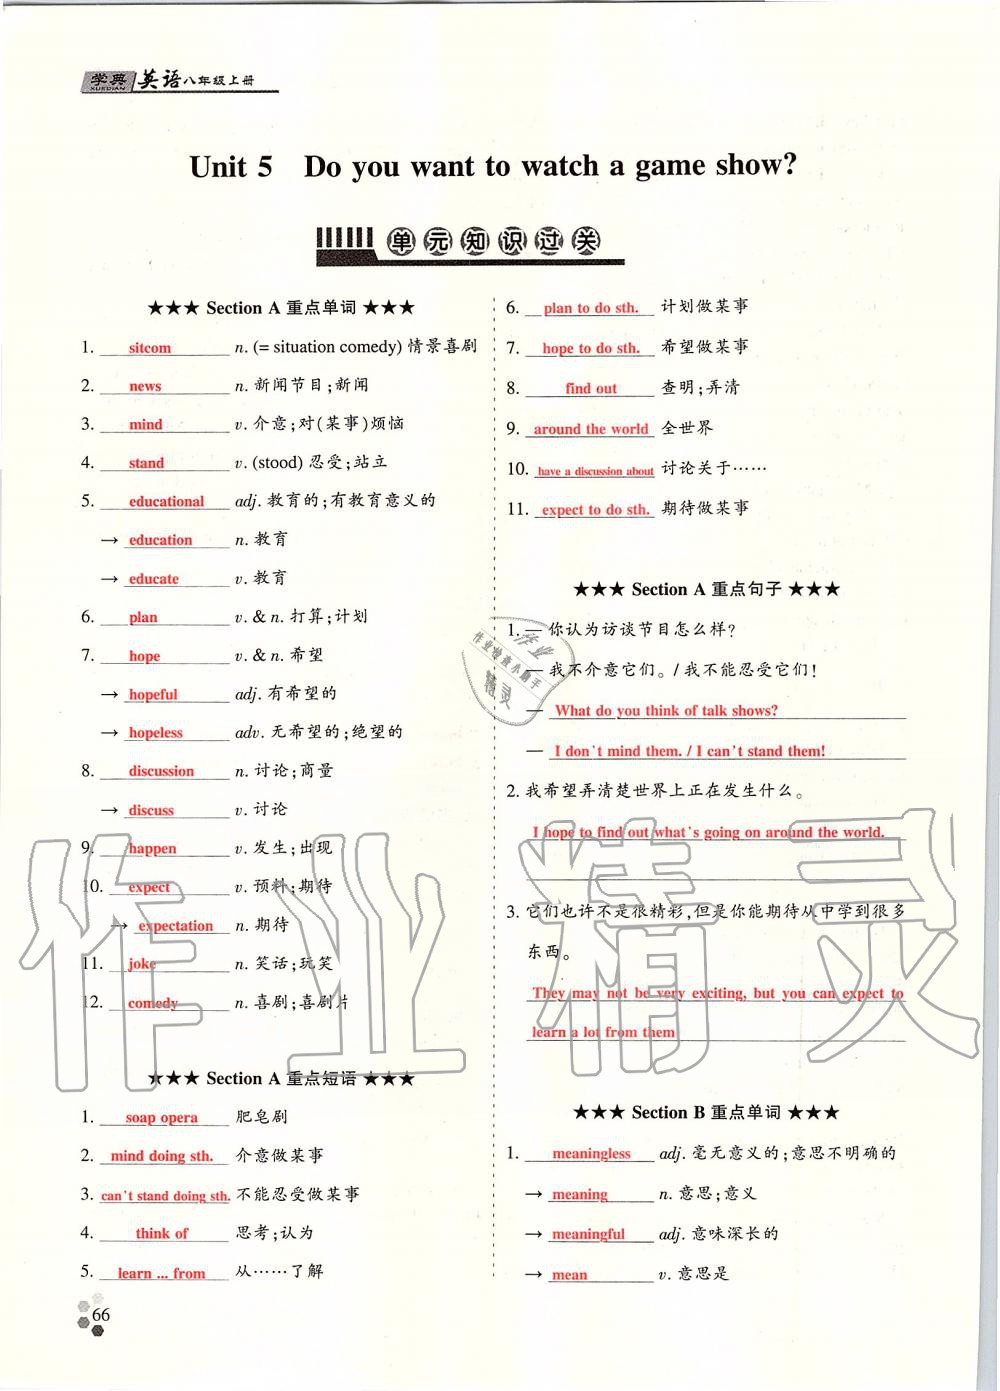 学典 XUEDIAN 英语八年级上册
Unit 5 Do you want to watch a game show?
单元知识过关
★★★ Section A 重点单词 ★★★
1. sitcom n. (= situation comedy) 情景喜剧
2. news n. 新闻节目;新闻
3. mind v. 介意;对(某事)烦恼
4. stand v. (stood) 忍受;站立
5. educational adj. 教育的;有教育意义的
→ education n. 教育
→ educate v. 教育
6. plan v. & n. 打算;计划
7. hope v. & n. 希望
→ hopeful adj. 有希望的
→ hopeless adv. 无希望的;绝望的
8. discussion n. 讨论;商量
→ discuss v. 讨论
9. happen v. 发生;出现
10. expect v. 预料;期待
→ expectation n. 期待
11. joke n. 笑话;玩笑
12. comedy n. 喜剧;喜剧片
★★★ Section A 重点短语 ★★★
1. soap opera 肥皂剧
2. mind doing sth. 介意做某事
3. can't stand doing sth. 不能忍受做某事
4. think of 思考;认为
5. learn ... from 从……了解
6. plan to do sth. 计划做某事
7. hope to do sth. 希望做某事
8. find out 查明;弄清
9. around the world 全世界
10. have a discussion about 讨论关于……
11. expect to do sth. 期待做某事
★★★ Section A 重点句子 ★★★
1. — 你认为访谈节目怎么样?
— 我不介意它们。/我不能忍受它们!
— What do you think of talk shows?
— I don't mind them. / I can't stand them!
2. 我希望弄清楚世界上正在发生什么。
I hope to find out what's going on around the world.
3. 它们也许不是很精彩,但是你能期待从中学到很多
东西。
They may not be very exciting, but you can expect to
learn a lot from them
★★★ Section B 重点单词 ★★★
1. meaningless adj. 毫无意义的;意思不明确的
→ meaning n. 意思;意义
→ meaningful adj. 意味深长的
→ mean v. 意思是
66
作业精灵